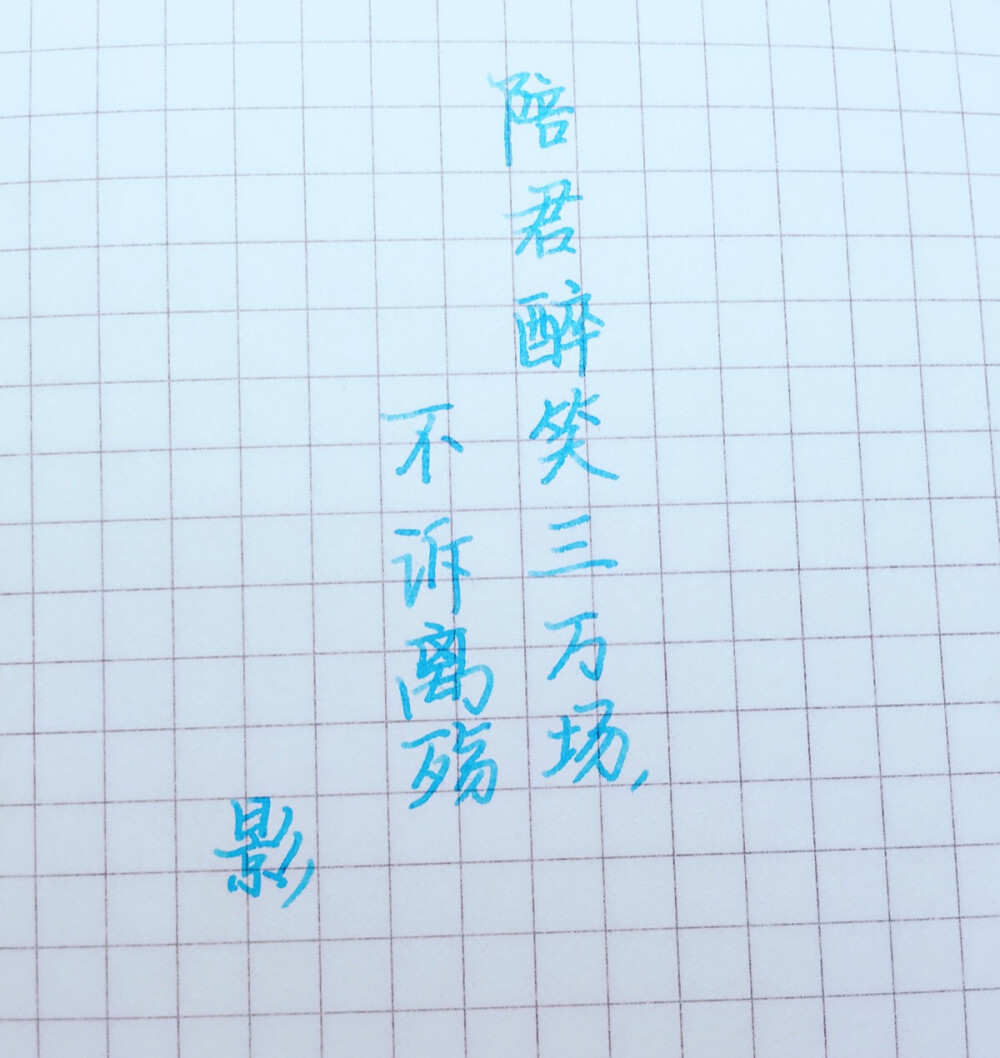 陪君醉笑三万场,
不诉离殇
影